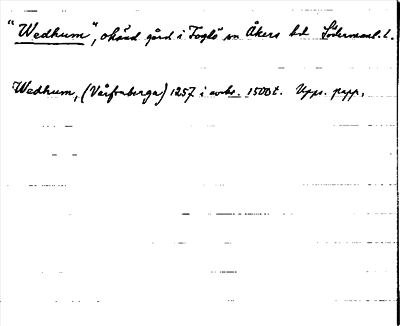 "Wedhum", okänd gård i Fogló sn Åkers hd Södermanl. l.
Wedhum, (Vårfruberga) 1257 i avskr. 1500 t. Upps. papp.